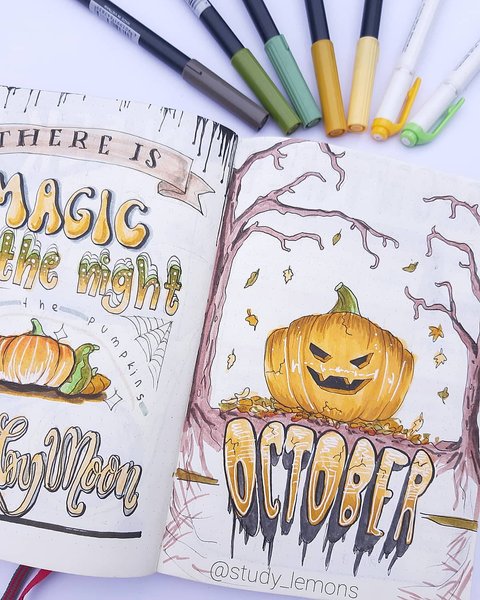 THERE IS
MAGIC
the night
the pumpkins
Moon
OCTOBER
@study_lemons